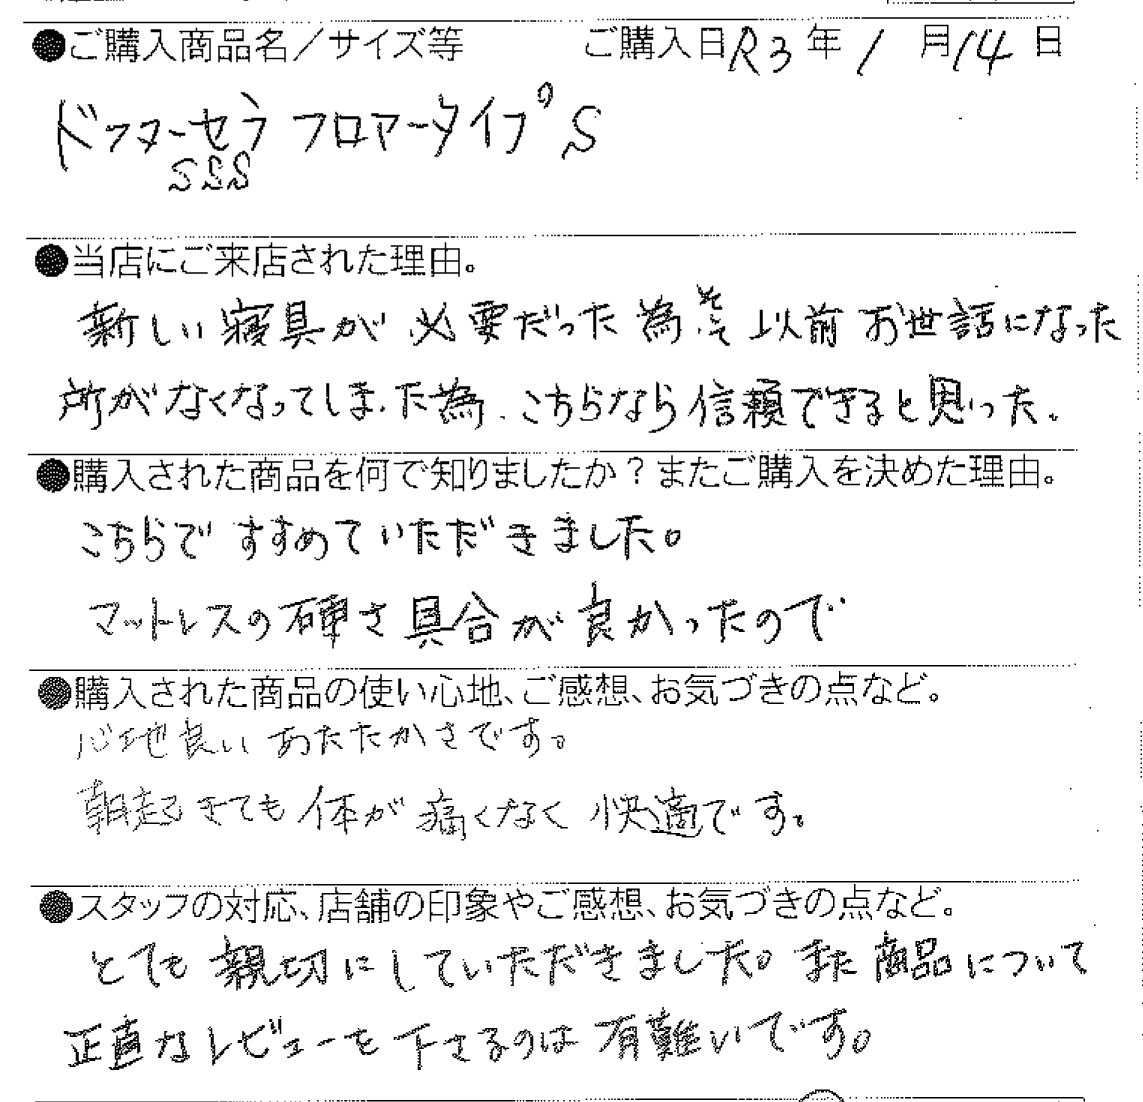 ●ご購入商品名／サイズ等 ご購入日R3年1月14日
ドクターセラ フロアータイプ S
SSS
●当店にご来店された理由。
新しい寝具が必要だった為、以前お世話になった
所がなくなってしまった為、こちらなら信頼できると思った。
●購入された商品を何で知りましたか？またご購入を決めた理由。
こちらですすめていただきました。
マットレスの硬さ具合が良かったので
●購入された商品の使い心地、ご感想、お気づきの点など。
心地良いあたたかさです。
朝起きても体が痛くなく快適です。
●スタッフの対応、店舗の印象やご感想、お気づきの点など。
とても親切にしていただきました。また商品について
正直なレビューを下さるのは有難いです。